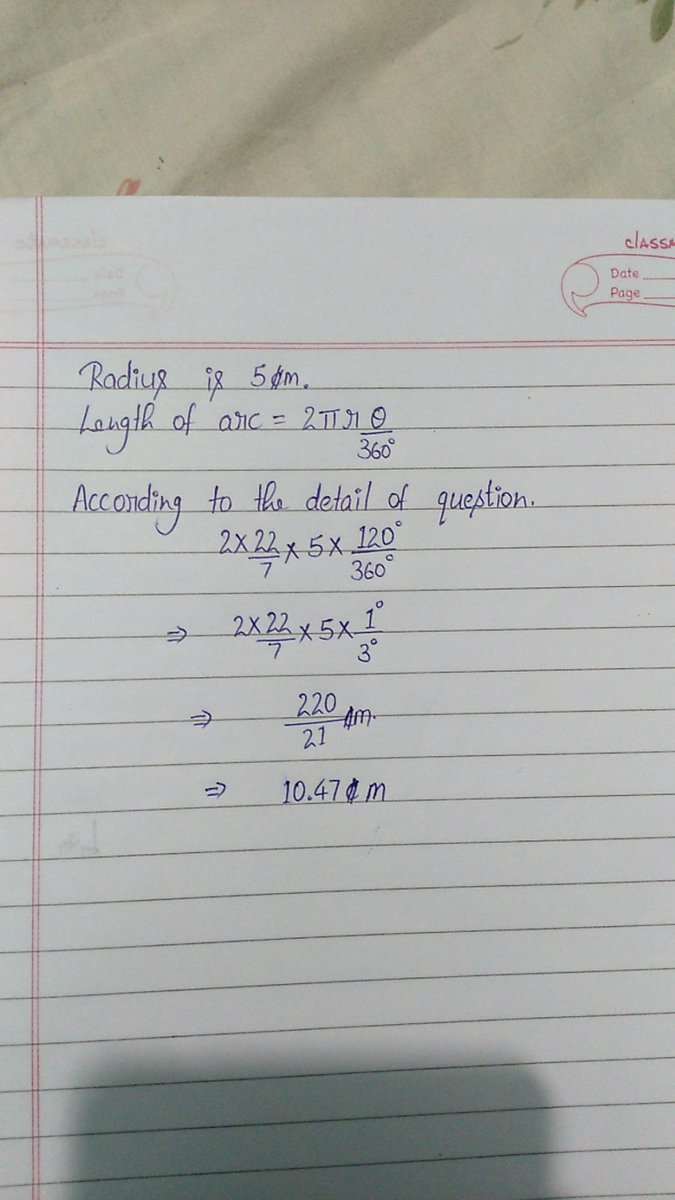 classm
Date
Page
Radius is 5 m.
Length of arc = 2πr θ/360°
According to the detail of question.
2×22/7 × 5 × 120°/360°
⇒ 2×22/7 × 5 × 1°/3°
⇒ 220/21 m.
⇒ 10.47 m